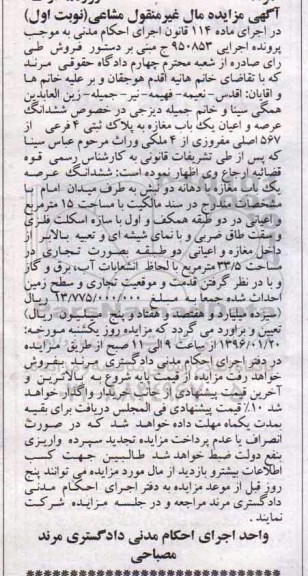 آگهی مزایده مال غیرمنقول مشاعی(نوبت اول)
در اجرای ماده ۱۱۴ قانون اجرای احکام مدنی به موجب
پرونده اجرایی ۹۵۰۸۵۳ ج مبنی بر دستور فروش طی
رای صادره از شعبه محترم چهارم دادگاه حقوقی مرند
که با تقاضای خانم هانیه اقدم هوجقان و بر علیه خانم ها
و اقایان: اقدس-نعیمه-فهیمه-نیر-جمیله-زین العابدین
همگی سینا و خانم جمیله دیزجی در خصوص ششدانگ
عرصه و اعیان یک باب مغازه به پلاک ثبتی ۴ فرعی از
۵۶۷ اصلی مفروزی از ۴ ملکی وراث مرحوم عباس سینا
که پس از طی تشریفات قانونی به کارشناس رسمی قوه
قضائیه ارجاع وی اظهار نموده است: ششدانگ عرصه
یک باب مغازه با دهانه دو نبش به طرف میدان امام با
مشخصات مندرج در سند مالکیت با مساحت ۱۵ مترمربع
و اعیانی در دو طبقه همکف و اول با سازه اسکلت فلزی
و سقف طاق ضربی و با نمای شیشه ای و تعبیه بالابر از
داخل مغازه و اعیانی دو طبقه بصورت تجاری در
مساحت ۳۳/۵ مترمربع با لحاظ انشعابات آب، برق و گاز
و با در نظر گرفتن قدمت و موقعیت تجاری و سطح زمین
احداث شده جمعا به مبلغ ۱۳/۷۷۵/۰۰۰/۰۰۰ ریال
(سیزده میلیارد و هفتصد و هفتاد و پنج میلیون ریال)
تعیین و براورد می گردد که مزایده روز یکشنبه مورخه:
۱۳۹۶/۰۱/۲۰ از ساعت ۹ الی ۱۱ صبح از طریق مزایده
در دفتر اجرای احکام مدنی دادگستری مرند بفروش
خواهد رفت مزایده از قیمت پایه شروع به بالاترین و
آخرین قیمت پیشنهادی از جانب خریدار واگذار خواهد
شد ۱۰٪ قیمت پیشنهادی فی المجلس دریافت برای بقیه
بمدت یکماه مهلت داده خواهد شد که در صورت
انصراف یا عدم پرداخت مزایده تجدید سپرده واریزی
بنفع دولت ضبط خواهد شد طالبین جهت کسب
اطلاعات بیشتر و بازدید از مال مورد مزایده می توانند پنج
روز قبل از موعد مزایده به دفتر اجرای احکام مدنی
دادگستری مرند مراجعه و در جلسه مزایده شرکت
نمایند .
واحد اجرای احکام مدنی دادگستری مرند
مصباحی